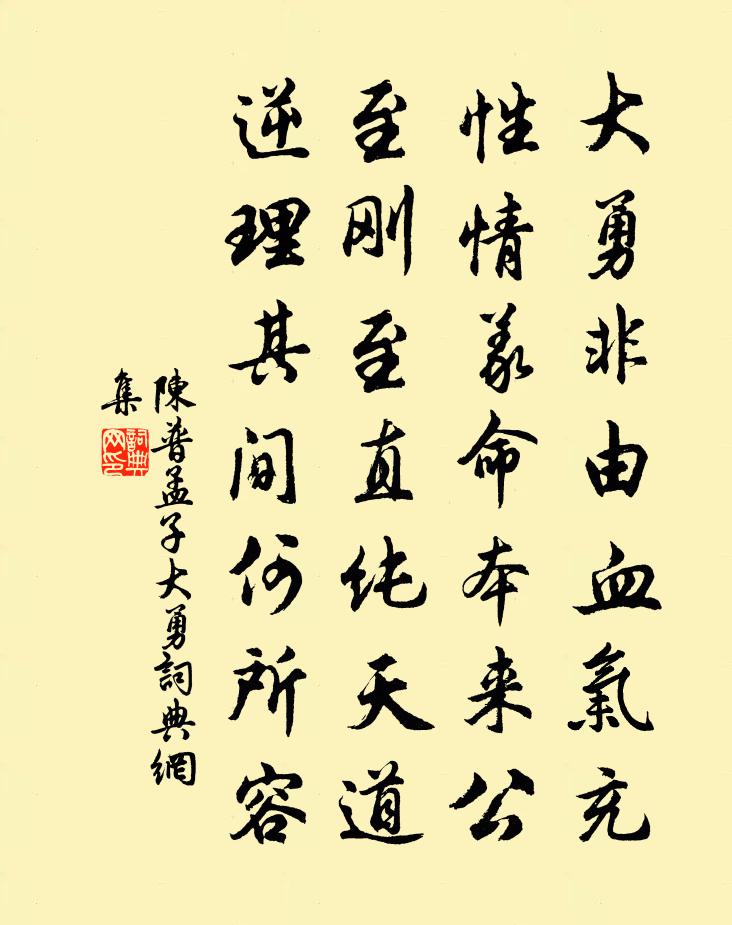 大勇非由血氣充
性情義命本来公
至刚至直纯天道
逆理其间何所容
陳普孟子大勇詞典網
集
詞典
网印